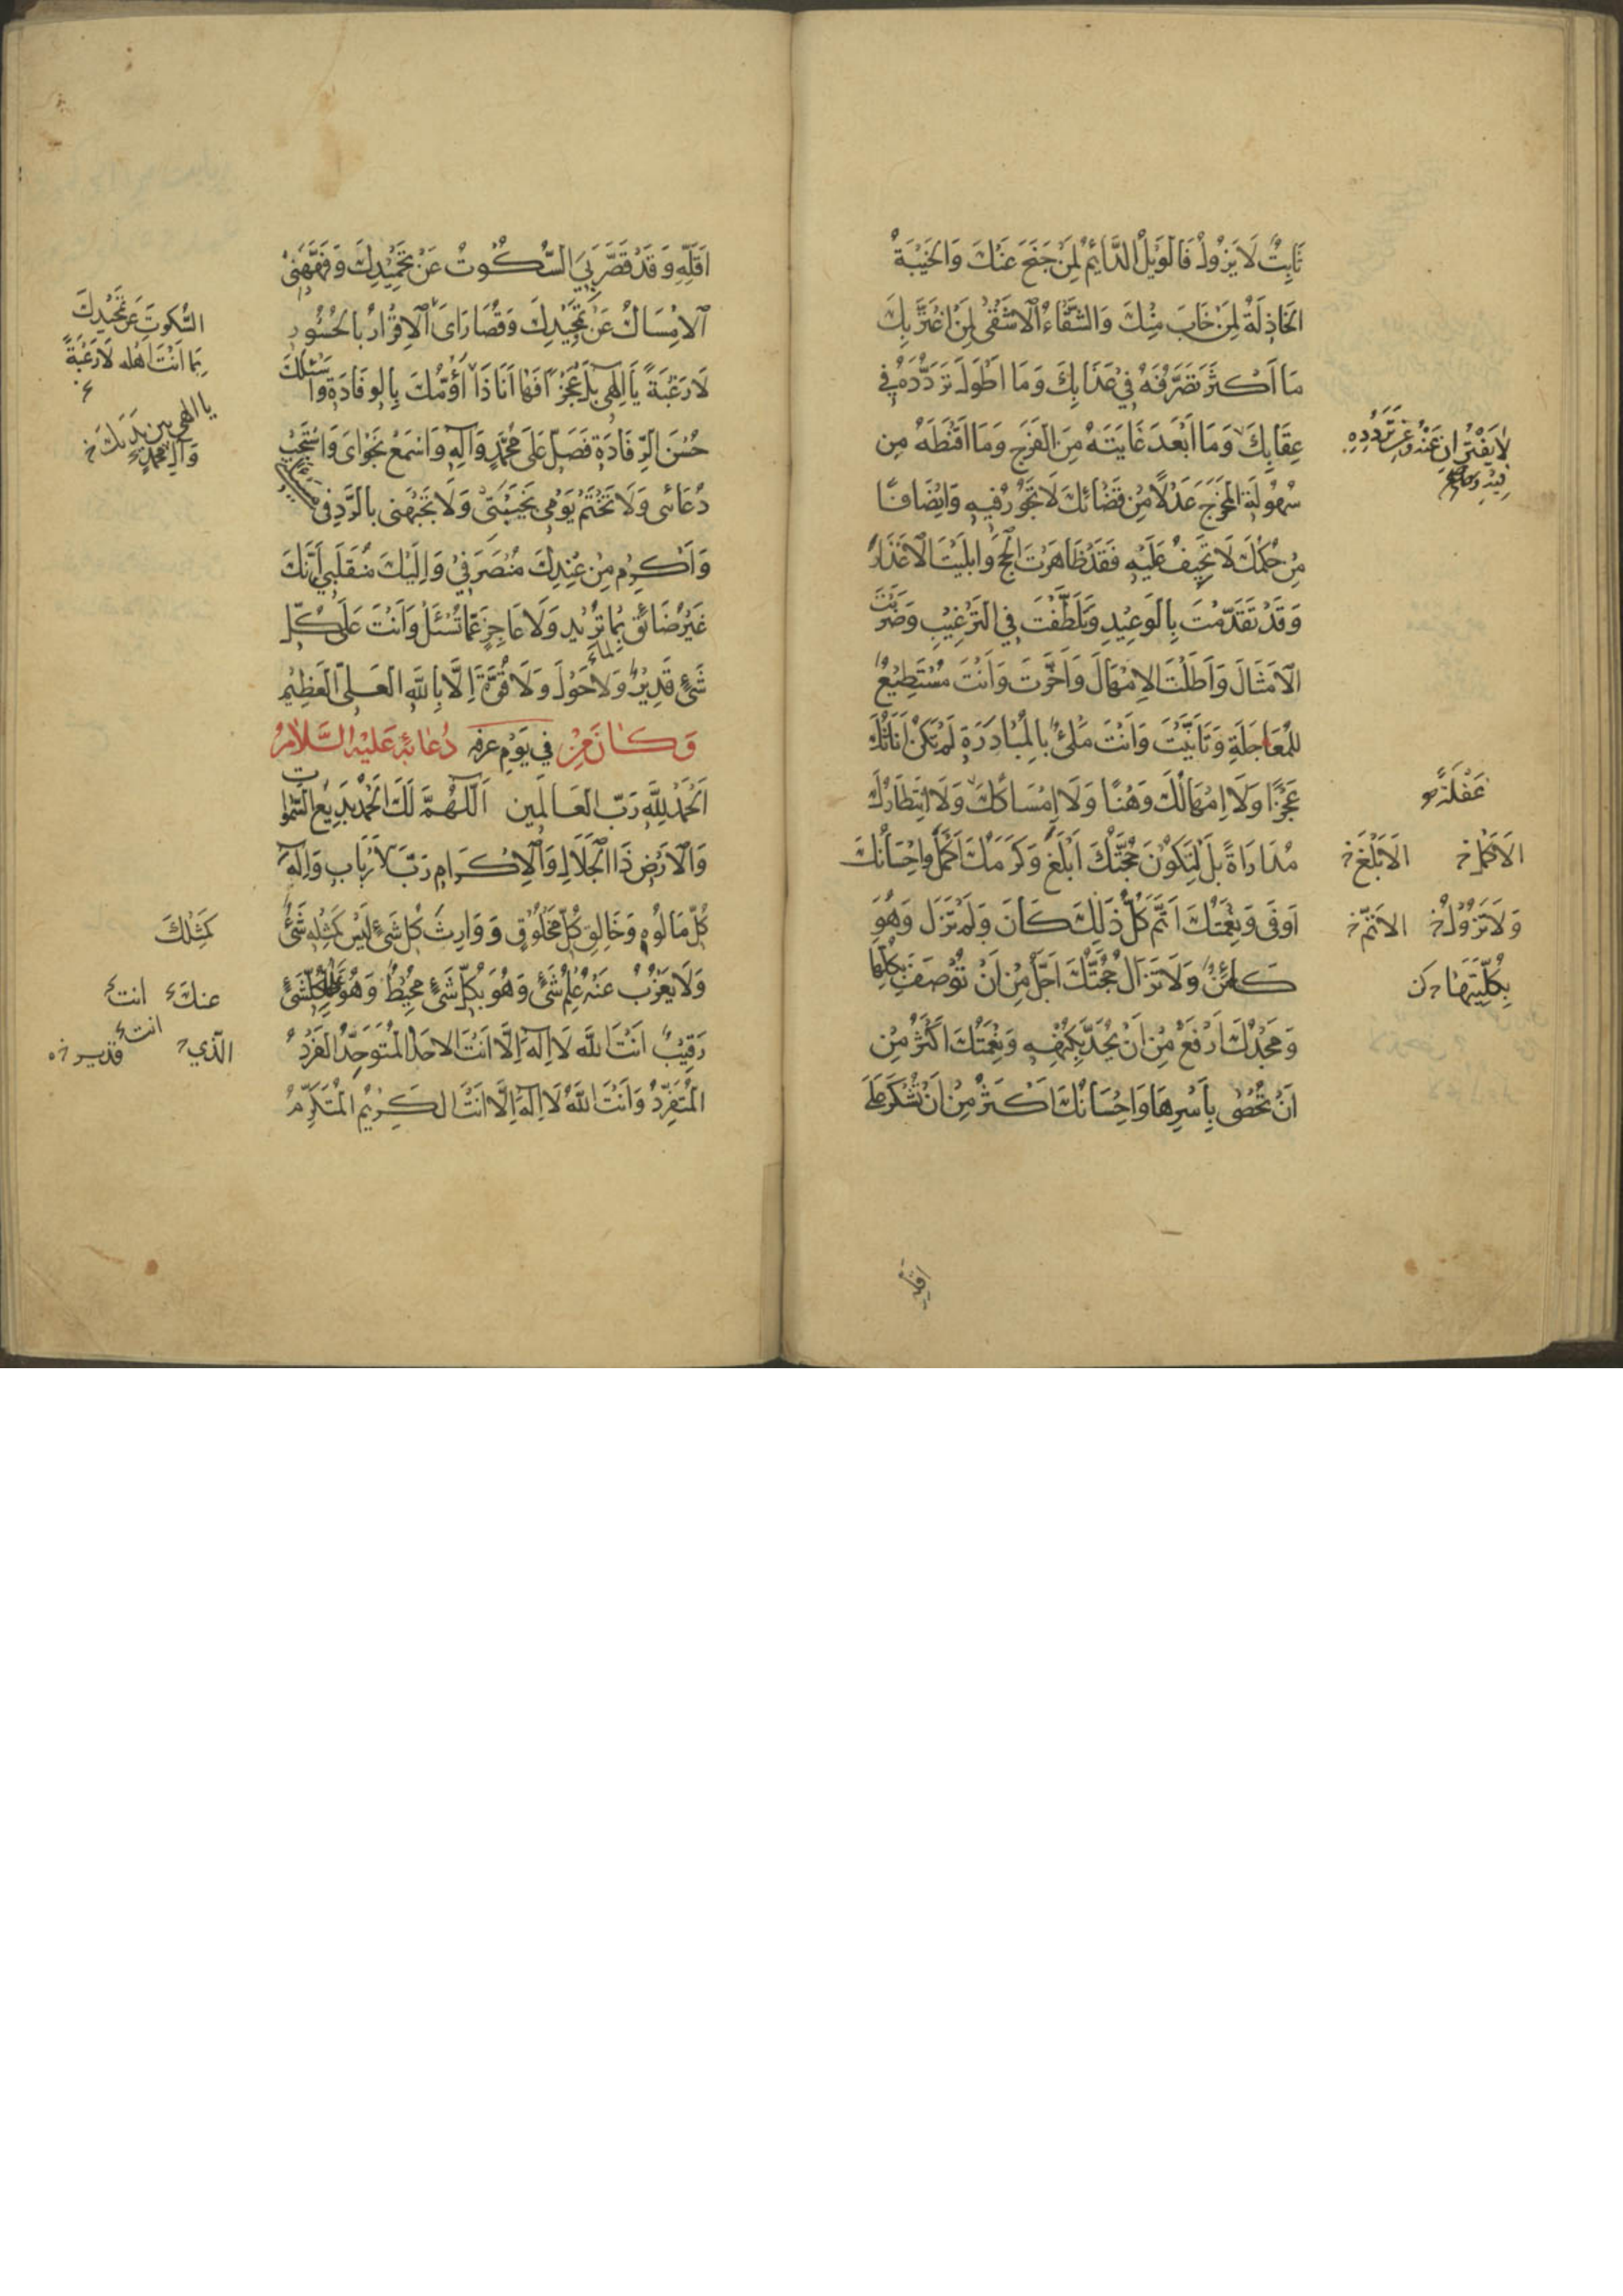 ثَابِتٌ لَا يَزُولُ فَالْوَيْلُ الدَّائِمُ لِمَنْ جَنَحَ عَنْكَ وَالْخَيْبَةُ
الْخَاذِلَةُ لِمَنْ خَابَ مِنْكَ وَالشَّقَاءُ الْأَشْقَى لِمَنِ اغْتَرَّ بِكَ
مَا أَكْثَرَ تَصَرُّفَهُ فِي عَذَابِكَ وَمَا أَطْوَلَ تَرَدُّدَهُ فِي
عِقَابِكَ وَمَا أَبْعَدَ غَايَتَهُ مِنَ الْفَرَجِ وَمَا أَقْنَطَهُ مِنْ
سُهُولَةِ الْمَخْرَجِ عَدْلًا مِنْ قَضَائِكَ لَا تَجُورُ فِيهِ وَإِنْصَافًا
مِنْ حُكْمِكَ لَا تَحِيفُ عَلَيْهِ فَقَدْ ظَاهَرْتَ الْحُجَجَ وَأَبْلَيْتَ الْأَعْذَارَ
وَقَدْ تَقَدَّمْتَ بِالْوَعِيدِ وَتَلَطَّفْتَ فِي التَّرْغِيبِ وَضَرَبْتَ
الْأَمْثَالَ وَأَطَلْتَ الْإِمْهَالَ وَأَخَّرْتَ وَأَنْتَ مُسْتَطِيعٌ
لِلْمُعَاجَلَةِ وَتَأَنَّيْتَ وَأَنْتَ مَلِئٌ بِالْمُبَادَرَةِ لَمْ تَكُنْ أَنَاتُكَ
عَجْزًا وَلَا إِمْهَالُكَ وَهْنًا وَلَا إِمْسَاكُكَ وَلَا انْتِظَارُكَ
مُدَارَاةً بَلْ لِتَكُونَ حُجَّتُكَ أَبْلَغَ وَكَرَمُكَ أَكْمَلَ وَإِحْسَانُكَ
أَوْفَى وَنِعْمَتُكَ أَتَمَّ كُلُّ ذَلِكَ كَانَ وَلَمْ تَزَلْ وَهُوَ
كَائِنٌ وَلَا تَزَالُ حُجَّتُكَ أَجَلُّ مِنْ أَنْ تُوصَفَ بِكُلِّهَا
وَمَجْدُكَ أَرْفَعُ مِنْ أَنْ يُحَدَّ بِكُنْهِهِ وَنِعْمَتُكَ أَكْثَرُ مِنْ
أَنْ تُحْصَى بِأَسْرِهَا وَإِحْسَانُكَ أَكْثَرُ مِنْ أَنْ تُشْكَرَ عَلَى
الْأَكْمَلَ خ الْأَبْلَغَ خ
وَلَا تَزُولُ خ الْأَتَمَّ خ
أَقَلِّهِ
أَقَلِّهِ وَقَدْ قَصَّرَ بِيَ السُّكُوتُ عَنْ تَحْمِيدِكَ وَفَهَّهَنِي
الْإِمْسَاكُ عَنْ تَمْجِيدِكَ وَقُصَارَايَ الْإِقْرَارُ بِالْحُسُورِ
لَا رَغْبَةً يَا إِلَهِي بَلْ عَجْزًا فَهَا أَنَا ذَا أَؤُمُّكَ بِالْوِفَادَةِ وَأَسْئَلُكَ
حُسْنَ الرِّفَادَةِ فَصَلِّ عَلَى مُحَمَّدٍ وَآلِهِ وَاسْمَعْ نَجْوَايَ وَاسْتَجِبْ
دُعَائِي وَلَا تَخْتِمْ يَوْمِي بِخَيْبَتِي وَلَا تَجْبَهْنِي بِالرَّدِّ فِي مَسْئَلَتِي
وَأَكْرِمْ مِنْ عِنْدِكَ مُنْصَرَفِي وَإِلَيْكَ مُنْقَلَبِي إِنَّكَ
غَيْرُ ضَائِقٍ بِمَا تُرِيدُ وَلَا عَاجِزٍ عَمَّا تُسْئَلُ وَأَنْتَ عَلَى كُلِّ
شَيْءٍ قَدِيرٌ وَلَا حَوْلَ وَلَا قُوَّةَ إِلَّا بِاللَّهِ الْعَلِيِّ الْعَظِيمِ
وَكَانَ مِنْ دُعَائِهِ عَلَيْهِ السَّلَامُ فِي يَوْمِ عَرَفَهِ
الْحَمْدُ لِلَّهِ رَبِّ الْعَالَمِينَ اللَّهُمَّ لَكَ الْحَمْدُ بَدِيعَ السَّمَوَاتِ
وَالْأَرْضِ ذَا الْجَلَالِ وَالْإِكْرَامِ رَبَّ الْأَرْبَابِ وَإِلَهَ
كُلِّ مَأْلُوهٍ وَخَالِقَ كُلِّ مَخْلُوقٍ وَوَارِثَ كُلِّ شَيْءٍ لَيْسَ كَمِثْلِهِ شَيْءٌ
وَلَا يَعْزُبُ عَنْهُ عِلْمُ شَيْءٍ وَهُوَ بِكُلِّ شَيْءٍ مُحِيطٌ وَهُوَ عَلَى كُلِّ شَيْءٍ
رَقِيبٌ أَنْتَ اللَّهُ لَا إِلَهَ إِلَّا أَنْتَ الْأَحَدُ الْمُتَوَحِّدُ الْفَرْدُ
الْمُتَفَرِّدُ وَأَنْتَ اللَّهُ لَا إِلَهَ إِلَّا أَنْتَ الْكَرِيمُ الْمُتَكَرِّمُ
السُّكُوتَ عَنْ تَحْمِيدِكَ
بِمَا أَنْتَ أَهْلُهُ لَا رَغْبَةً
كَمِثْلِكَ
عَنْكَ أَنْتَ
الَّذِي أَنْتَ قَدِيرٌ